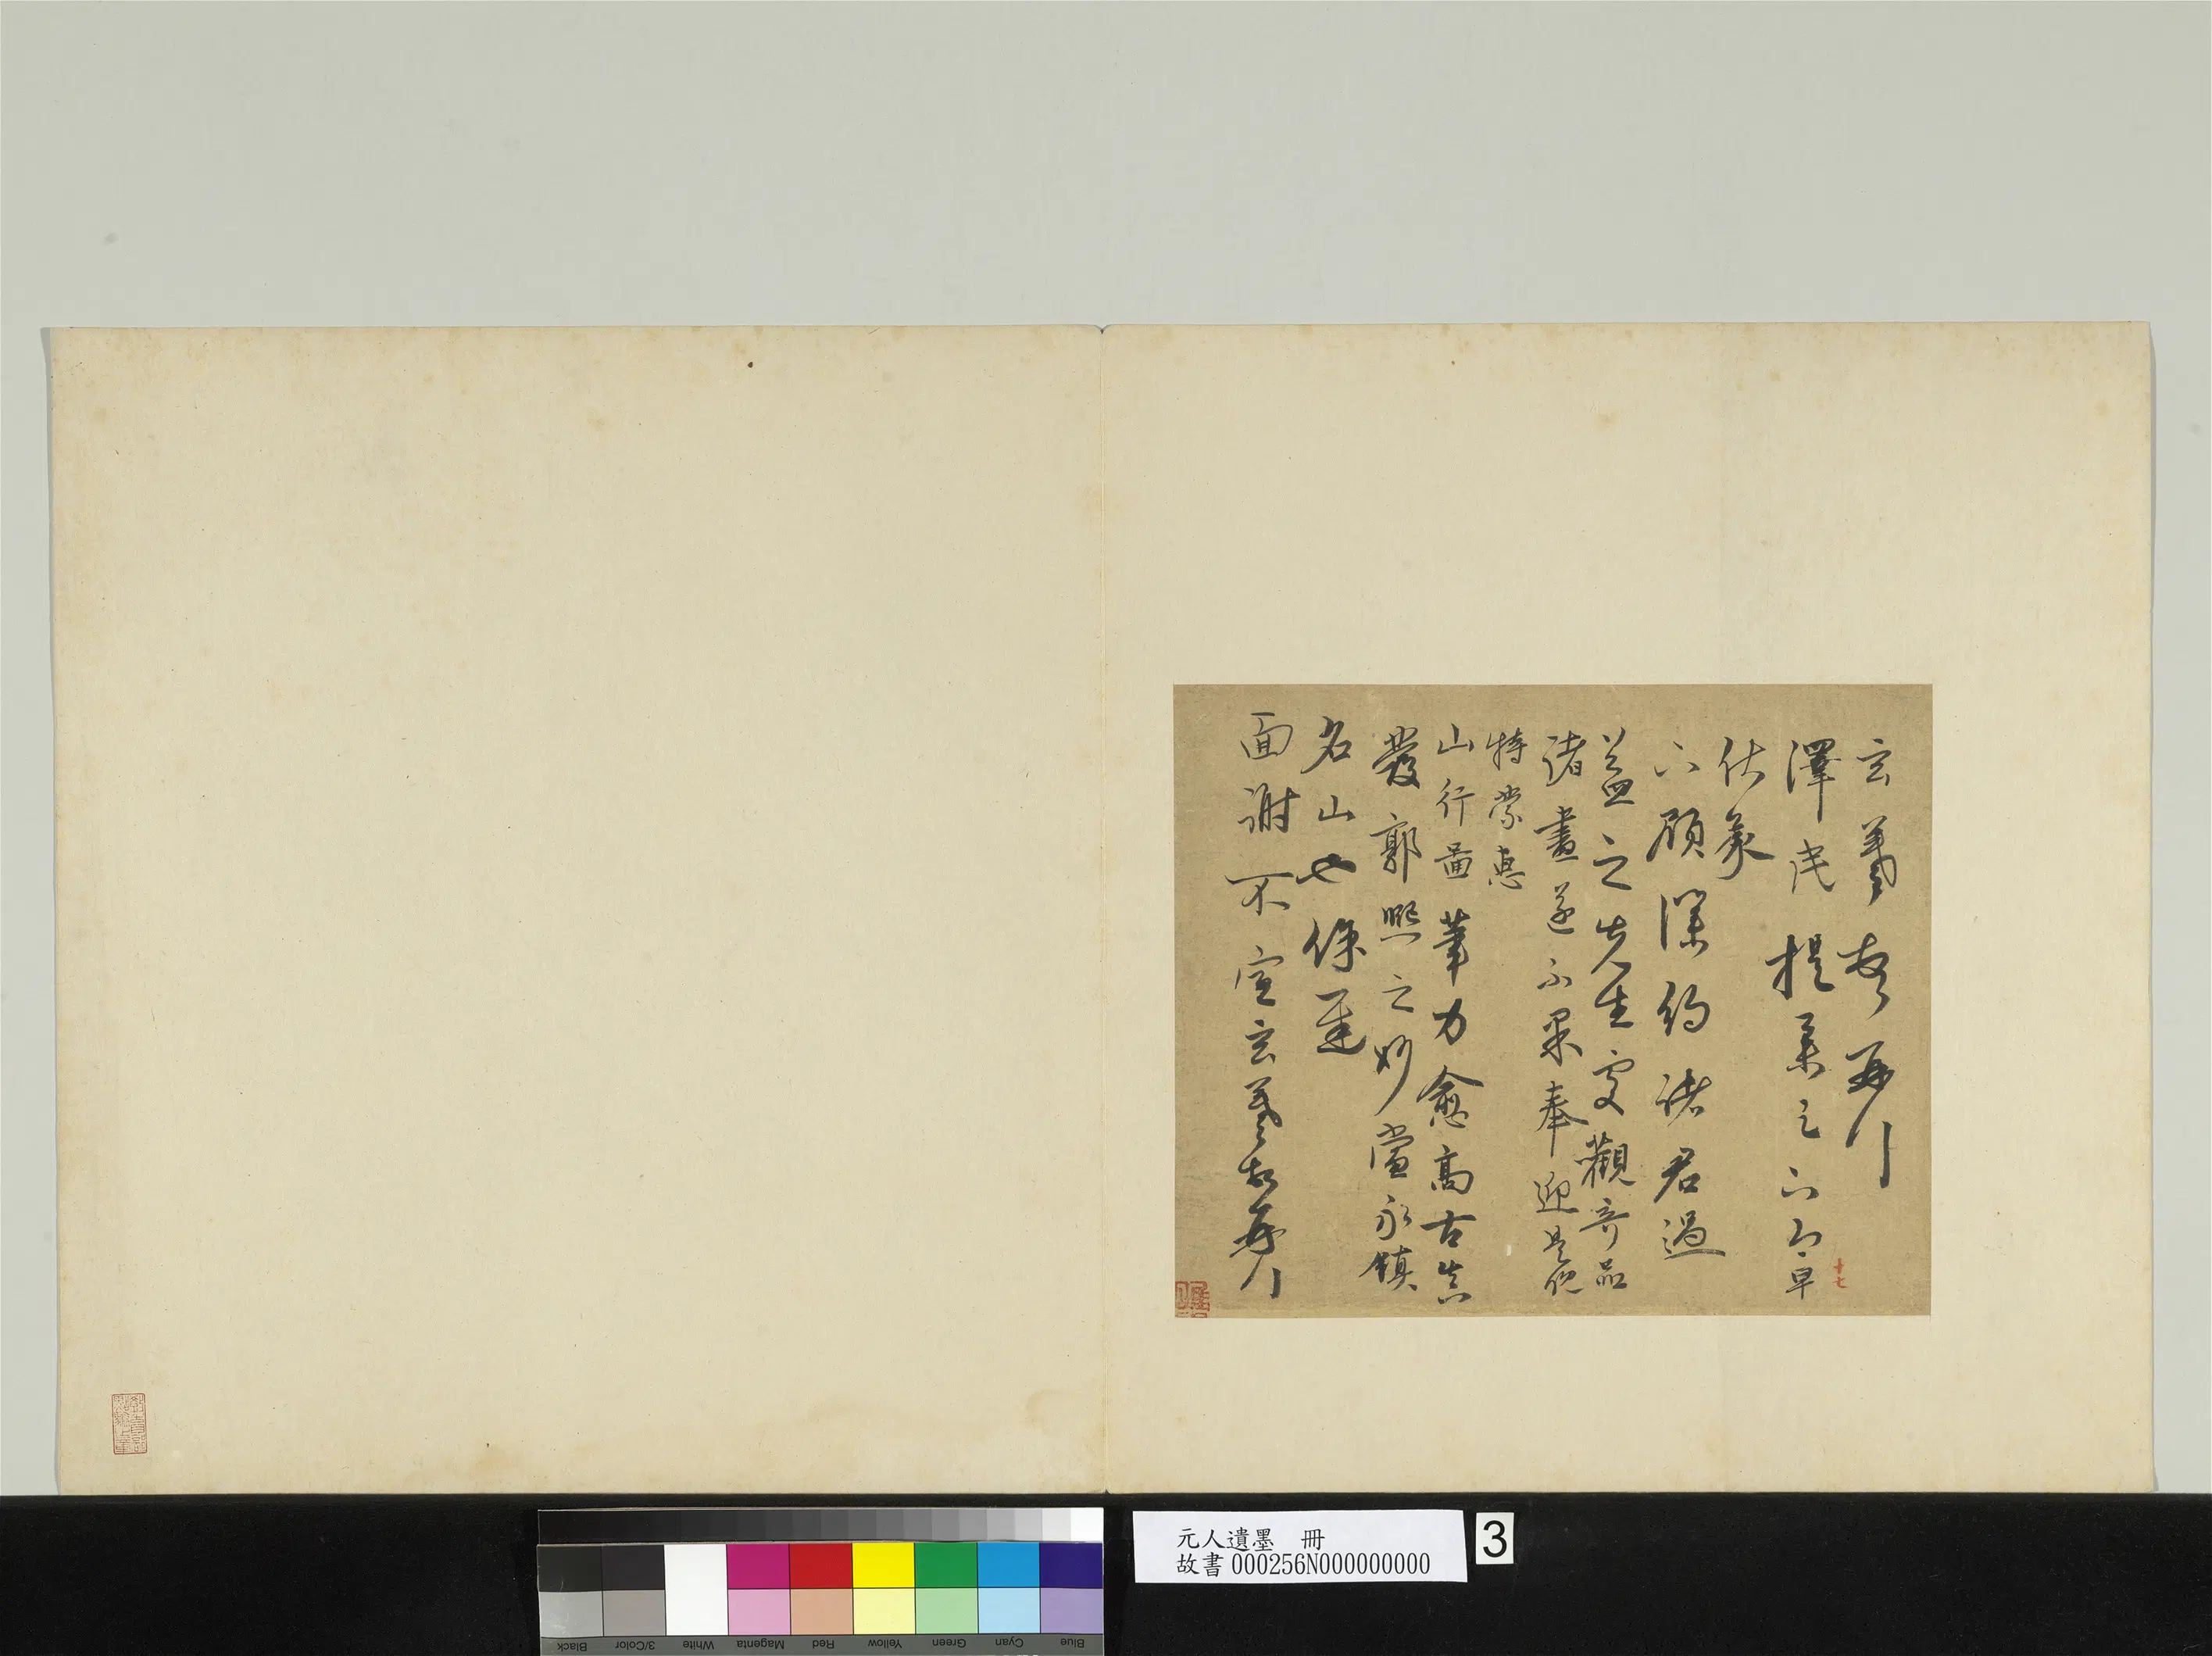 玄羲頓首再拜
澤民提舉足下今早
伏承
下顧深約諸君過
益之先生處觀奇品
諸畫遂不果奉迎是晚
特蒙惠
山行圖筆力愈高古真
發郭熙之妙當永鎮
名山也餘遲
面謝不宣玄羲頓首再拜
十七
元人遺墨 冊
故書000256N000000000
3
Black
3/Color
White
Magenta
Red
Yellow
Green
Cyan
Blue